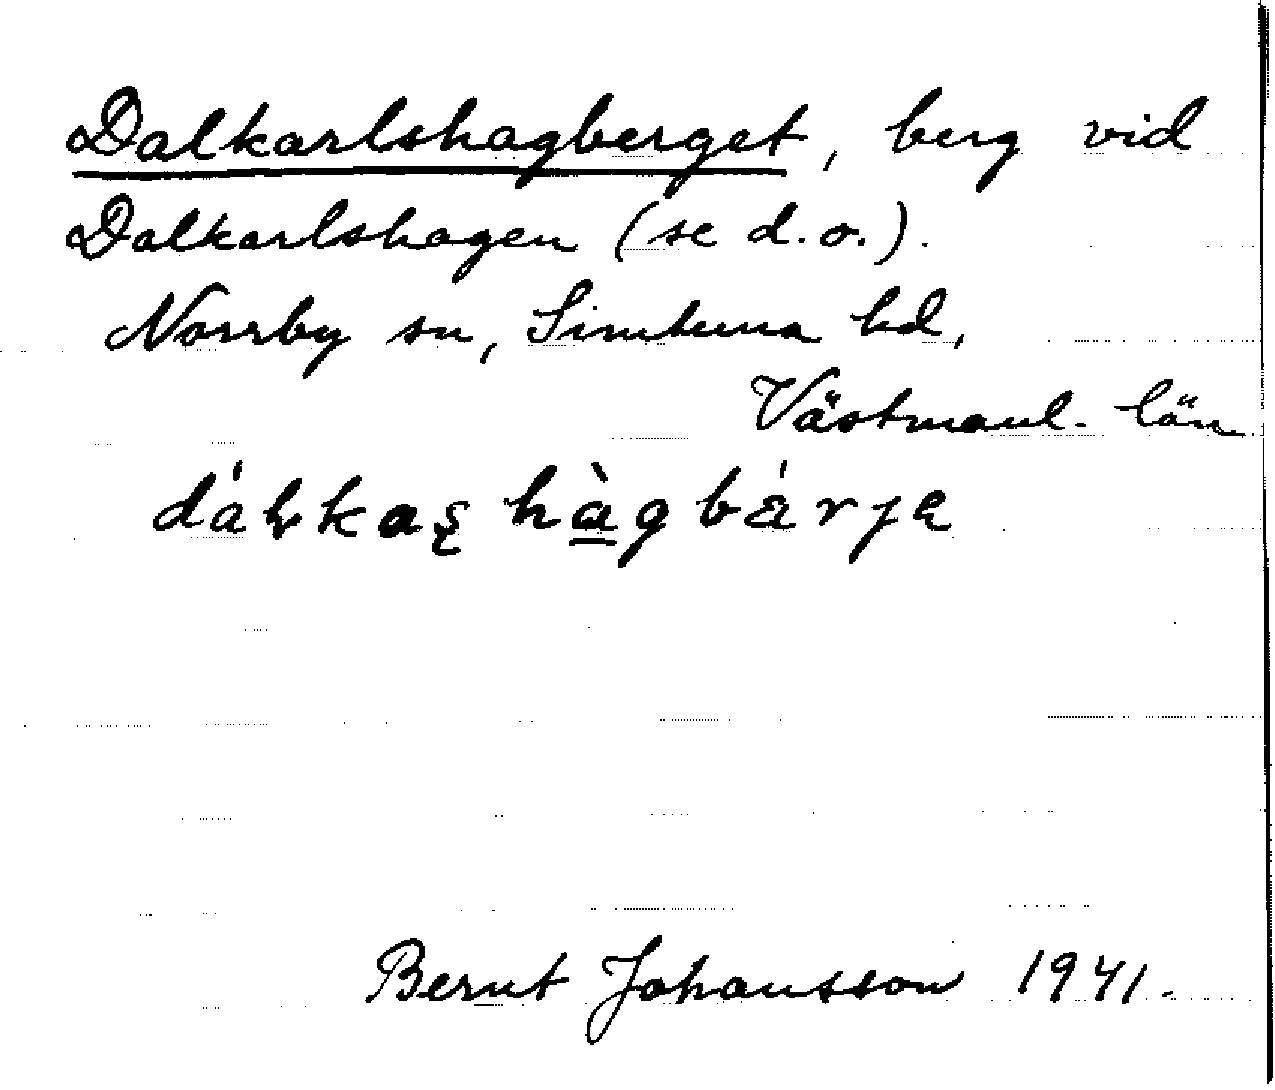 Dalkarlshagberget, berg vid
Dalkarlshagen (se d.o.).
Norrby sn, Simtuna hd,
Västmanl. län
Bernt Johansson 1941.